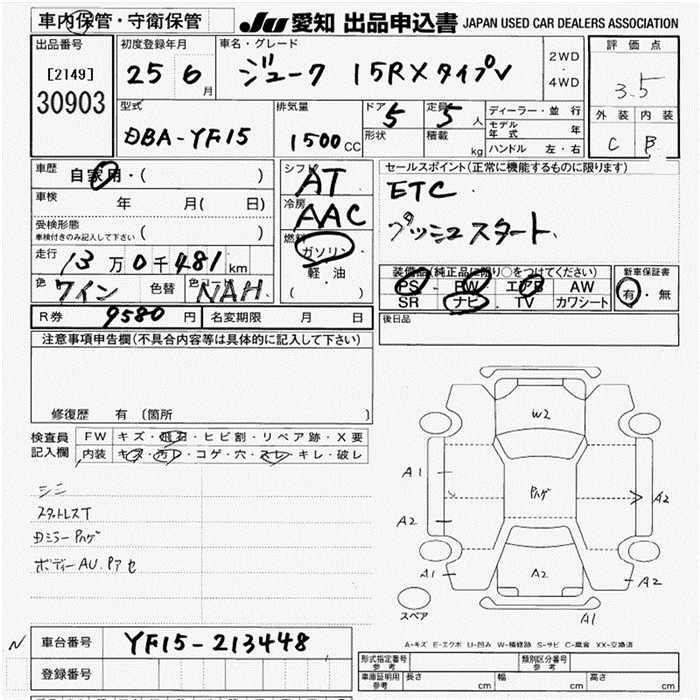 車内保管・守衛保管
JU 愛知 出品申込書 JAPAN USED CAR DEALERS ASSOCIATION
出品番号
[2149]
30903
初度登録年月
25 6 月
車名・グレード
ジューク 15RXタイプV
2WD
・
4WD
評価点
3.5
外装 内装
C B
型式
DBA-YF15
排気量
1500 CC
ドア 5
形状
定員 5 人
積載 kg
ディーラー・並行
モデル年式 年
ハンドル 左・右
車歴 自家用・( )
車検 年 月( 日)
受検形態
車検付きのみ記入して下さい ( )
走行 13万0千481km
色 ワイン 色替 色コード NAH
シフト AT
冷房 AAC
燃料 ガソリン
軽・油
( )
セールスポイント(正常に機能するものに限ります)
ETC
プッシュスタート
装備品(純正品に限り○をつけてください)
PS PW エアB AW
SR ナビ TV カワシート
新車保証書
有・無
R券 9580 円 名変期限 月 日
後日品
注意事項申告欄(不具合内容等は具体的に記入して下さい)
修復歴 有 〔箇所 〕
検査員記入欄
FW キズ・飛石・ヒビ割・リペア跡・X要
内装 キズ・汚レ・コゲ・穴・スレ・キレ・破レ
スタットレスT
Dミラー Pハゲ
ボディーAU.Pアセ
W2
A1
Pハゲ
A2
A2
A1
A2
A2
A1
スペア
A-キズ E-エクボ U-凹み W-補修跡 S-サビ C-腐食 XX-交換済
N
車台番号 YF15-213448
登録番号
形式指定番号
参考
類別区分番号
参考
車庫証明用
参考
長さ cm 幅 cm 高さ cm